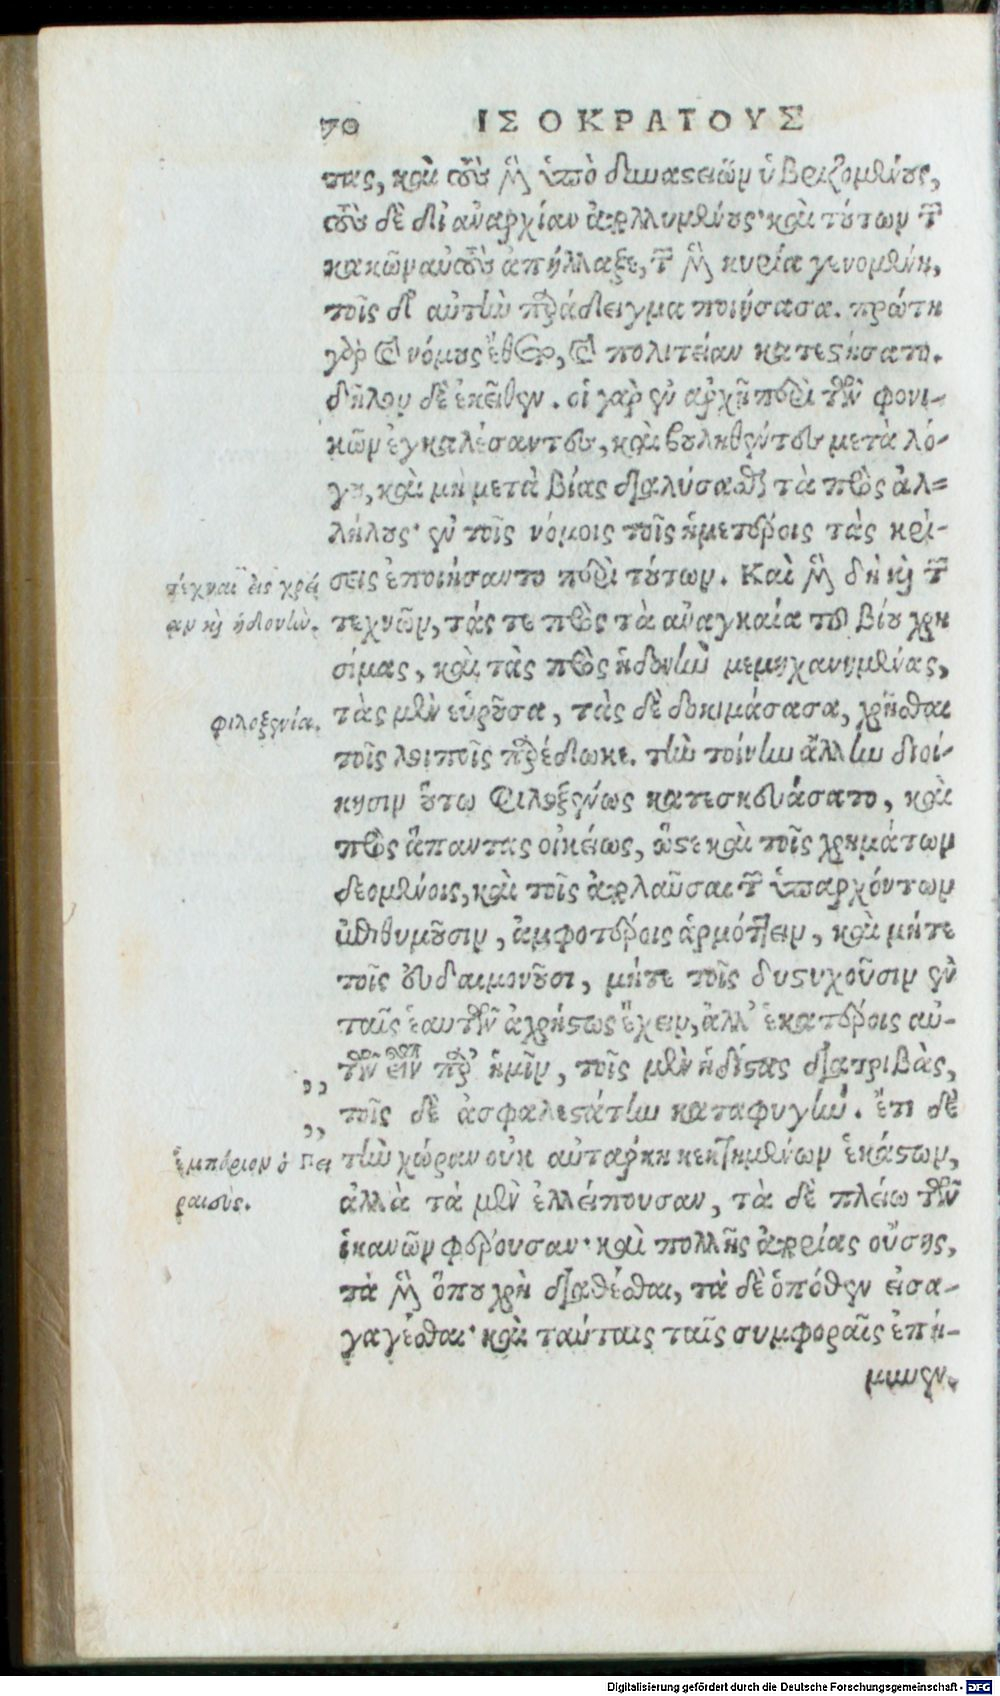 70 ΙΣΟΚΡΑΤΟΥΣ
τας, καὶ τοὺς μὲν ὑπὸ δυναστειῶν ὑβριζομένους,
τοὺς δὲ δι' ἀναρχίαν ἀπολλυμένους· καὶ τούτων τῶν
κακῶν αὐτοὺς ἀπήλλαξε, τῶν μὲν κυρία γενομένη,
τοῖς δ' αὑτὴν παράδειγμα ποιήσασα. πρώτη
γὰρ καὶ νόμους ἔθετο, καὶ πολιτείαν κατεστήσατο.
δῆλον δὲ ἐκεῖθεν. οἱ γὰρ ἐν ἀρχῇ περὶ τῶν φονι-
κῶν ἐγκαλέσαντες, καὶ βουληθέντες μετὰ λό-
γου, καὶ μὴ μετὰ βίας διαλύσασθαι τὰ πρὸς ἀλ-
λήλους· ἐν τοῖς νόμοις τοῖς ἡμετέροις τὰς κρί-
τέχναι εἰς χρεί σεις ἐποιήσαντο περὶ τούτων. Καὶ μὲν δὴ καὶ τῶν
αν καὶ ἡδονὴν. τεχνῶν, τάς τε πρὸς τὰ ἀναγκαῖα τοῦ βίου χρη
σίμας, καὶ τὰς πρὸς ἡδονὴν μεμηχανημένας,
φιλοξενία. τὰς μὲν εὑροῦσα, τὰς δὲ δοκιμάσασα, χρῆσθαι
τοῖς λοιποῖς παρέδωκε. τὴν τοίνυν ἄλλην διοί-
κησιν οὕτω φιλοξένως κατεσκευάσατο, καὶ
πρὸς ἅπαντας οἰκείως, ὥστε καὶ τοῖς χρημάτων
δεομένοις, καὶ τοῖς ἀπολαῦσαι τῶν ὑπαρχόντων
ἐπιθυμοῦσιν, ἀμφοτέροις ἁρμόττειν, καὶ μήτε
τοῖς εὐδαιμονοῦσι, μήτε τοῖς δυστυχοῦσιν ἐν
ταῖς ἑαυτῶν ἀχρήστως ἔχειν, ἀλλ' ἑκατέροις αὐ-
,, τῶν εἶναι παρ' ἡμῖν, τοῖς μὲν ἡδίστας διατριβὰς,
,, τοῖς δὲ ἀσφαλεστάτην καταφυγήν. ἔτι δὲ
ἐμπόριον ὁ Πει τὴν χώραν οὐκ αὐτάρκη κεκτημένων ἑκάστων,
ραιεύς. ἀλλὰ τὰ μὲν ἐλλείπουσαν, τὰ δὲ πλείω τῶν
ἱκανῶν φέρουσαν· καὶ πολλῆς ἀπορίας οὔσης,
τὰ μὲν ὅπου χρὴ διαθέσθαι, τὰ δὲ ὁπόθεν εἰσα-
γαγέσθαι· καὶ ταύταις ταῖς συμφοραῖς ἐπή-
μυνεν.
Digitalisierung gefördert durch die Deutsche Forschungsgemeinschaft - DFG